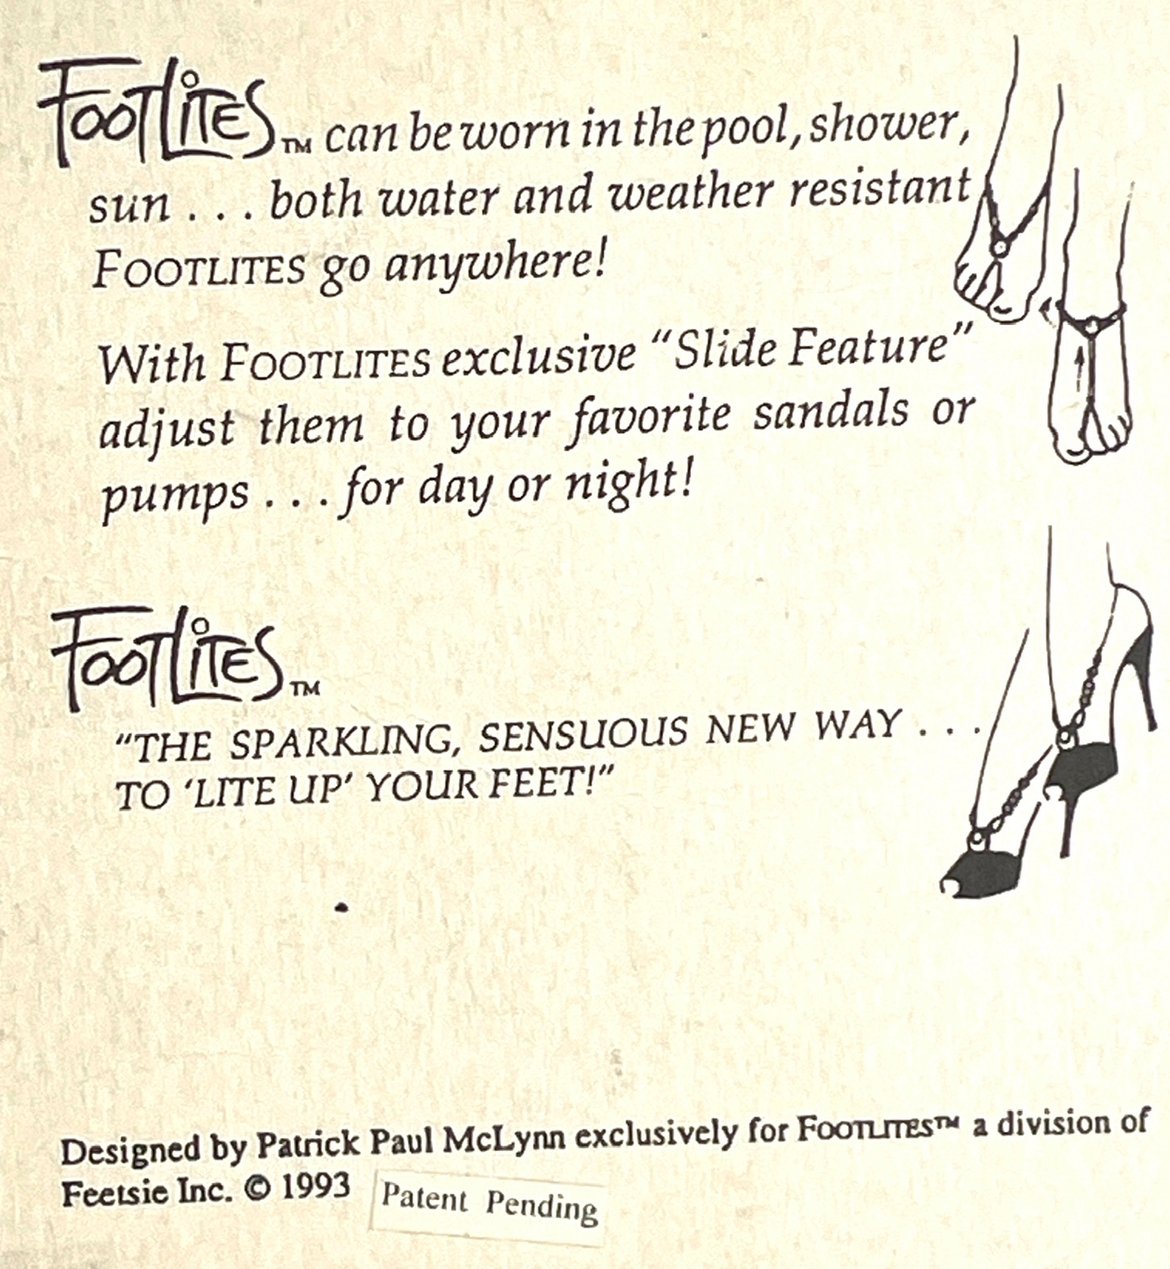 FOOTLITES™ can be worn in the pool, shower,
sun . . . both water and weather resistant
FOOTLITES go anywhere!
With FOOTLITES exclusive "Slide Feature"
adjust them to your favorite sandals or
pumps . . . for day or night!
FOOTLITES™
"THE SPARKLING, SENSUOUS NEW WAY . . .
TO 'LITE UP' YOUR FEET!"
Designed by Patrick Paul McLynn exclusively for FOOTLITES™ a division of
Feetsie Inc. © 1993 Patent Pending